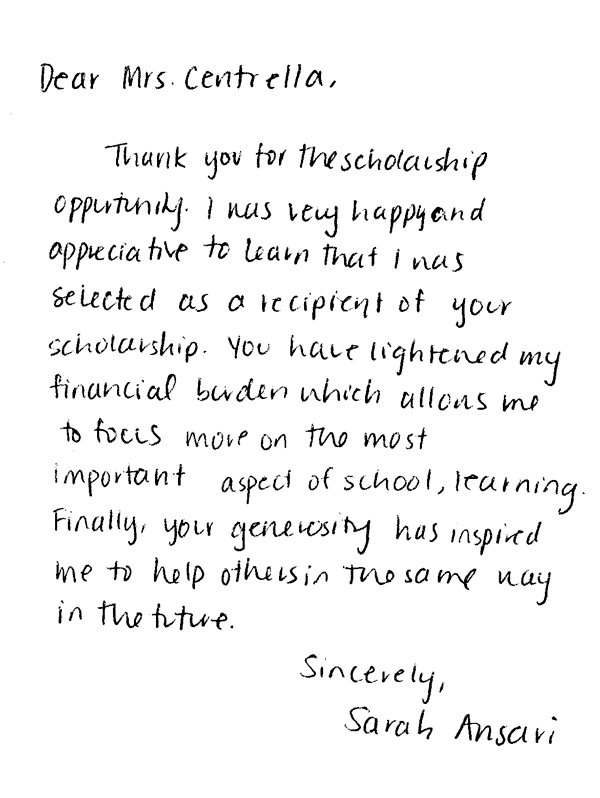 Dear Mrs. Centrella,
Thank you for the scholarship
opportunity. I was very happy and
appreciative to learn that I was
selected as a recipient of your
scholarship. You have lightened my
financial burden which allows me
to focus more on the most
important aspect of school, learning.
Finally, your generosity has inspired
me to help others in the same way
in the future.
Sincerely,
Sarah Ansari